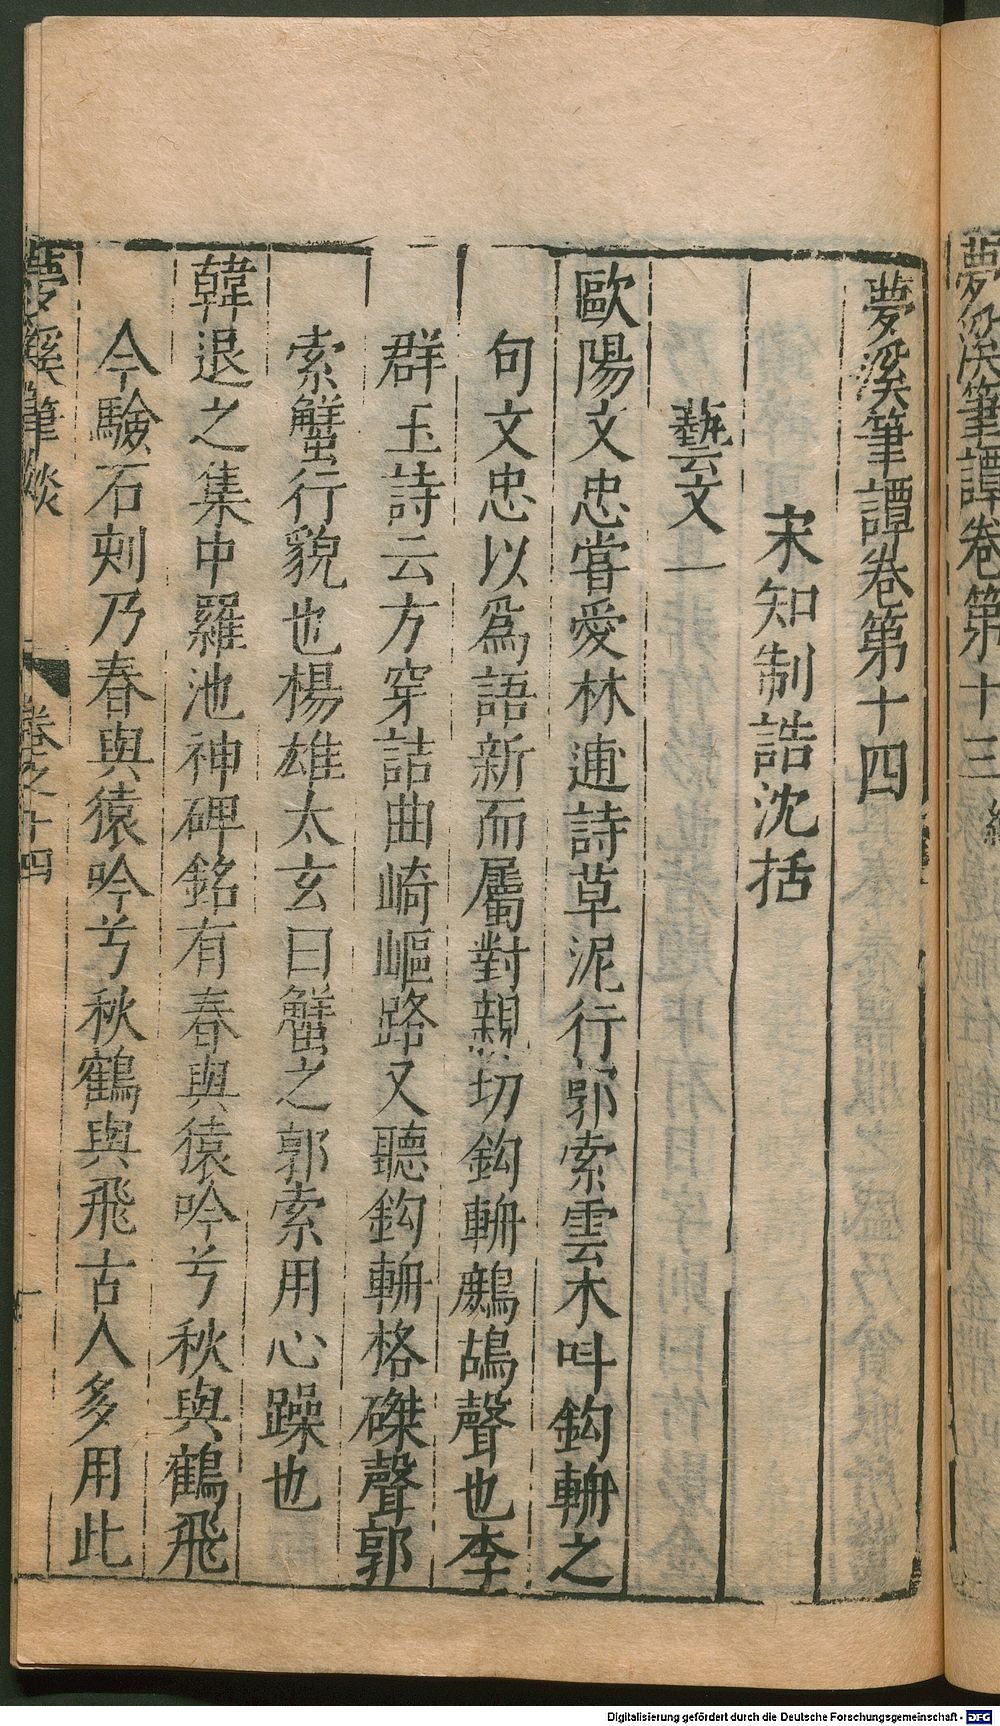 夢溪筆譚卷第十四
宋知制誥沈括
藝文一
歐陽文忠嘗愛林逋詩草泥行郭索雲木叫鈎輈之
句文忠以爲語新而屬對親切鈎輈鷓鴣聲也李
群玉詩云方穿詰曲崎嶇路又聽鈎輈格磔聲郭
索蟹行貌也楊雄太玄曰蟹之郭索用心躁也
韓退之集中羅池神碑銘有春與猿吟兮秋與鶴飛
今驗石刻乃春與猿吟兮秋鶴與飛古人多用此
夢溪筆談 卷之十四 一
夢溪筆譚卷第十三終
Digitalisierung gefördert durch die Deutsche Forschungsgemeinschaft - DFG